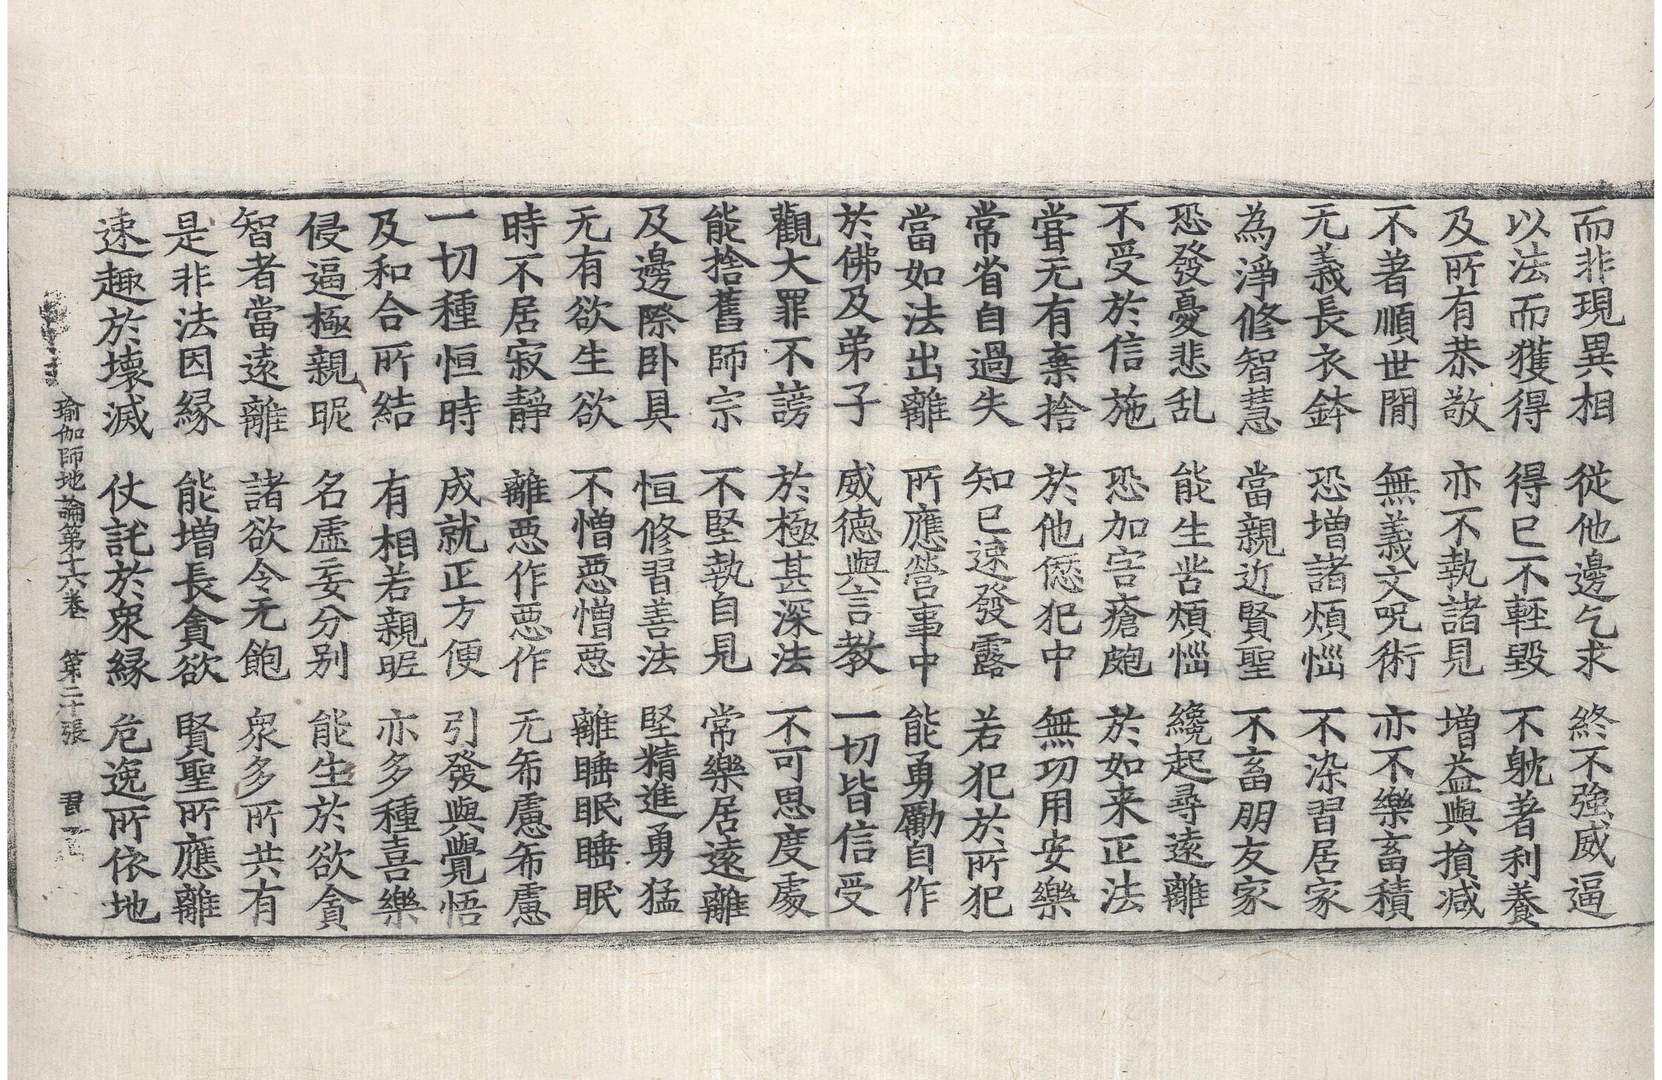 而非現異相　從他邊乞求　終不強威逼
以法而獲得　得已不輕毀　不躭著利養
及所有恭敬　亦不執諸見　增益與損減
不著順世閒　無義文呪術　亦不樂畜積
无義長衣鉢　恐增諸煩惱　不染習居家
為淨修智慧　當親近賢聖　不畜朋友家
恐發憂悲乱　能生苦煩惱　纔起尋遠離
不受於信施　恐加害瘡皰　於如来正法
甞无有棄捨　於他𠎝犯中　無功用安樂
常省自過失　知已速發露　若犯於所犯
當如法出離　所應營事中　能勇勵自作
於佛及弟子　威德與言教　一切皆信受
觀大罪不謗　於極甚深法　不可思度處
能捨舊師宗　不堅執自見　常樂居遠離
及邊際卧具　恒修習善法　堅精進勇猛
无有欲生欲　不憎惡憎惡　離睡眠睡眠
時不居寂靜　離惡作惡作　无希慮希慮
一切種恒時　成就正方便　引發與覺悟
及和合所結　有相若親昵　亦多種喜樂
侵逼極親昵　名虛妄分別　能生於欲貪
智者當遠離　諸欲令无飽　衆多所共有
是非法因緣　能增長貪欲　賢聖所應離
速趣於壞滅　仗託於衆緣　危逸所依地
瑜伽師地論第十六卷　第二十張